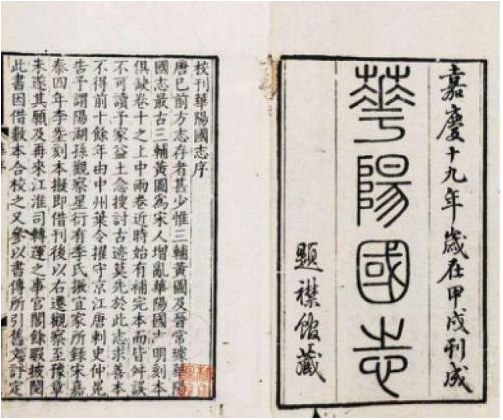 嘉慶十九年歲在甲戌刊成
華陽國志
題襟館藏
校刊華陽國志序
唐已前方志存者甚少惟三輔黃圖及晉常璩華陽
國志最古三輔黃圖為宋人增亂華陽國志明刻本
俱缺卷十之上中兩卷近時始有補完本而皆舛誤
不可讀予家益土念搜討古迹莫先於此志求善本
不得前十餘年由中州葉令擢守京江唐刺史仲冕
告予謂陽湖孫觀察星衍有季氏振宜家所錄宋嘉
泰四年李刻本擬即借刊後以右遷觀察至豫章
未遂其願及再來江淮司轉運之事官閣餘暇披閱
此書因借數本合校之又參以書傳所引舊文評定